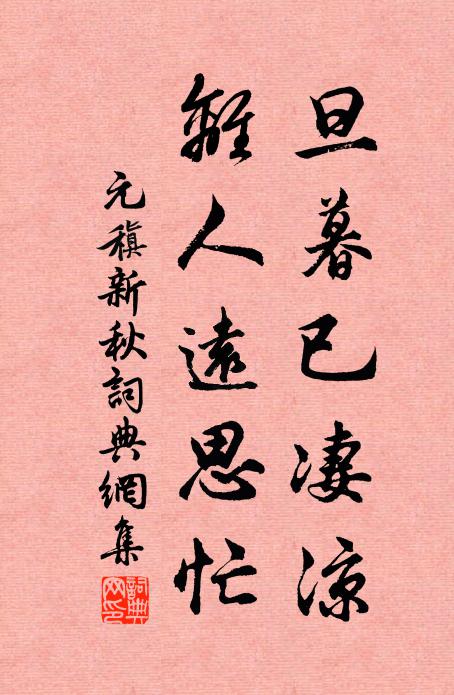 旦暮已凄涼
離人遠思忙
元稹新秋詞典網集
詞典網印